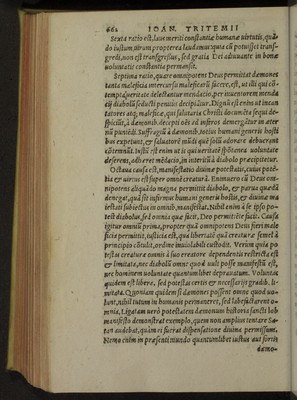 662 IOAN. TRITEMII
Sexta ratio est, laus meriti constantiæ humanæ virtutis, quādo
iustum virum propterea laudemus quia cū potuisset transgredi,
non est transgressus, sed gratia Dei adiuuante in bona
voluntatis constantia permansit.
Septima ratio, quare omnipotens Deus permitat dæmones
tanta malefica
cij diabolū seducti penitus decipiātur. Dignū est enim ut incantatores
atq; maleficæ, qui salutaria Christi documēta sequi despiciūt,
à dæmonib. decepti
nū puniēdi. Suffragiū à dæmonib. totius humani generis hosti
bus expetunt, & saluatorē
cōtemnūt. Iustū est enim ut is qui veritatē
deserens, adhæret mēdacio, in interitū à diabolo præcipitetur.
Octaua causa est, manifestatio diuinæ potestatis, cuius potētia
& virtus est super omnē creaturā. Enimuero cū Deus omnipotens
aliqua tā magna permittit diabolo, & parua quædā
denegat, quā sit infirmus humani generis hostis, & diuinæ maiestati
subiectus in omnib. manifestat. Nihil enim à se ipso potest
diabolus, sed omnia quæ facit, Deo permittēte facit. Causa
igitur omniū prima, propter quā omnipotens Deus fieri maleficia
permittit, iustitia est, qui libertatē quā creaturæ semel à
principio cōtulit, ordine inuiolabili custodit. Verùm quia potestas
creaturæ omnis à suo creatore dependētis restricta est
& limitata, nec diaboli omne quod vult posse manifestū est,
nec hominem voluntate quantumlibet deprauatum. Voluntas
quidem est libera, sed potestas certis & necessarijs gradib. limitata.
Quoniam quidem si dæmones possent omne quod volunt,
nihil tutum in humanis permaneret, sed labefactarent omnia.
Ligatam uerò potestatem dæmonum historia sancti Iob
manifesto demonstrat exemplo, quem non amplius tentare Satan
audebat, quàm ei fuerat dispensatione diuina permissum.
Nemo enim in præsenti mundo quantumlibet iustus aut fortis
dæmo-